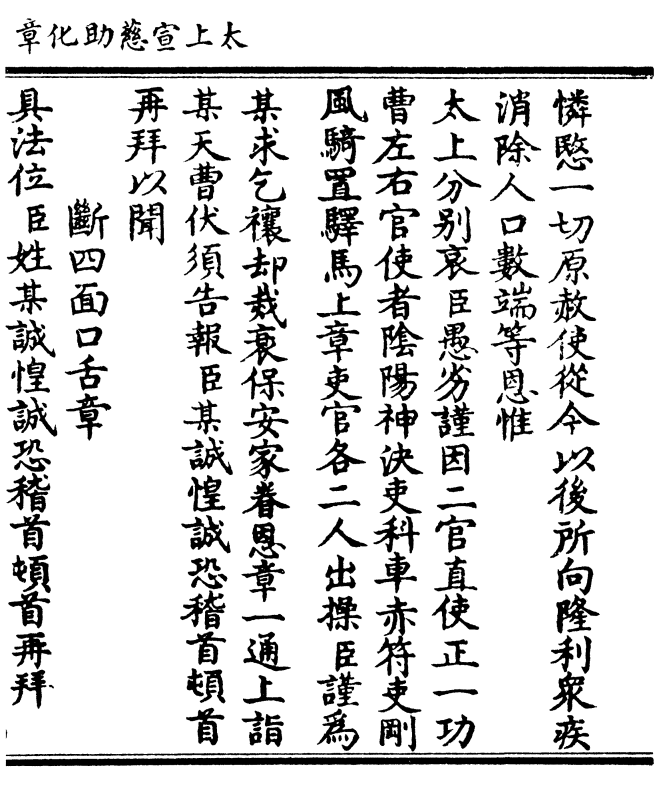 太上宣慈助化章
憐愍一切原赦使從今以後所向隆利衆疾
消除人口數端等恩惟
太上分别哀臣愚劣謹因二官直使正一功
曹左右官使者陰陽神決吏科車赤符吏剛
風騎置驛馬上章吏官各二人出操臣謹爲
某求乞禳却烖衰保安家眷恩章一通上詣
某天曹伏須告報臣某誠惶誠恐稽首頓首
再拜以聞
斷四面口舌章
具法位臣姓某誠惶誠恐稽首頓首再拜